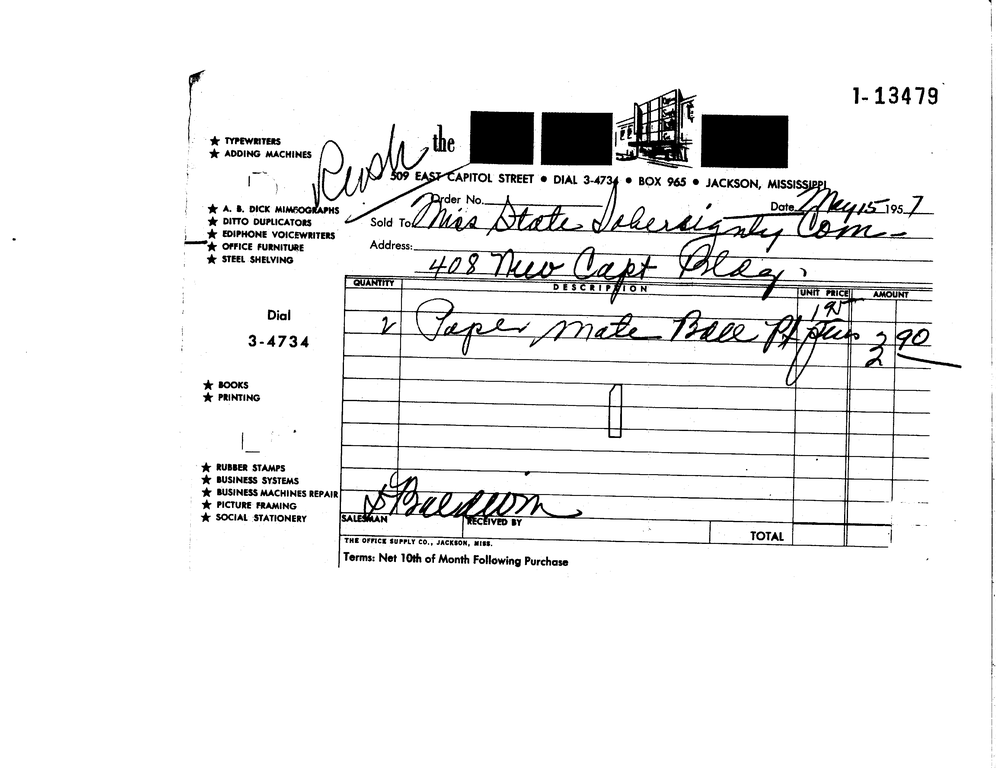 1-13479
★ TYPEWRITERS
★ ADDING MACHINES
Rush
the
509 EAST CAPITOL STREET • DIAL 3-4734 • BOX 965 • JACKSON, MISSISSIPPI
★ A. B. DICK MIMEOGRAPHS
★ DITTO DUPLICATORS
★ EDIPHONE VOICEWRITERS
★ OFFICE FURNITURE
★ STEEL SHELVING
Order No.
Date May 15 1957
Sold To Miss State Sobersignty Com-
Address:
408 New Capt Bldg.
QUANTITY DESCRIPTION UNIT PRICE AMOUNT
1 95
2 Paper Mate Ball Pt Pens 3 90
Dial
3-4734
★ BOOKS
★ PRINTING
★ RUBBER STAMPS
★ BUSINESS SYSTEMS
★ BUSINESS MACHINES REPAIR
★ PICTURE FRAMING
★ SOCIAL STATIONERY
Baldwin
SALESMAN RECEIVED BY
TOTAL
THE OFFICE SUPPLY CO., JACKSON, MISS.
Terms: Net 10th of Month Following Purchase